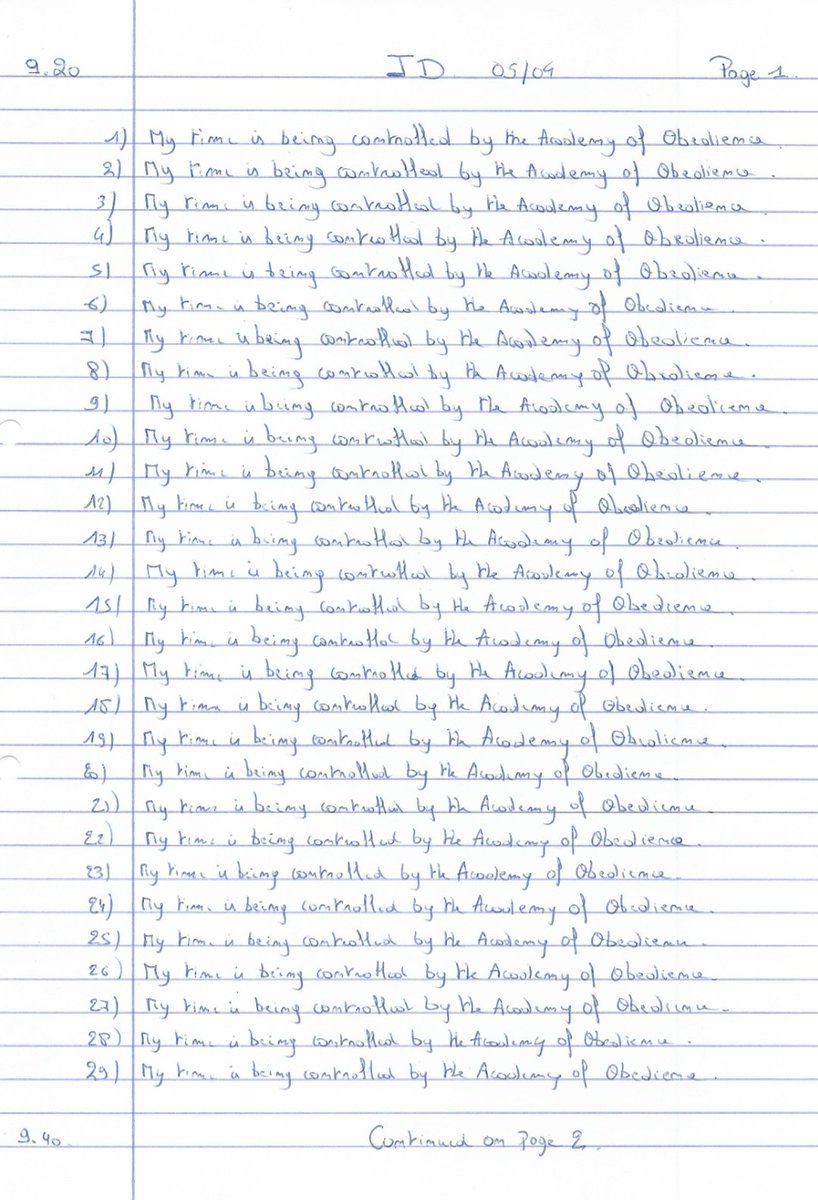 9.20 JD 05/04 Page 1.
1) My time is being controlled by the Academy of Obedience.
2) My time is being controlled by the Academy of Obedience.
3) My time is being controlled by the Academy of Obedience
4) My time is being controlled by the Academy of Obedience.
5) My time is being controlled by the Academy of Obedience.
6) My time is being controlled by the Academy of Obedience.
7) My time is being controlled by the Academy of Obedience.
8) My time is being controlled by the Academy of Obedience.
9) My time is being controlled by the Academy of Obedience.
10) My time is being controlled by the Academy of Obedience.
11) My time is being controlled by the Academy of Obedience.
12) My time is being controlled by the Academy of Obedience.
13) My time is being controlled by the Academy of Obedience.
14) My time is being controlled by the Academy of Obedience.
15) My time is being controlled by the Academy of Obedience.
16) My time is being controlled by the Academy of Obedience.
17) My time is being controlled by the Academy of Obedience.
18) My time is being controlled by the Academy of Obedience.
19) My time is being controlled by the Academy of Obedience.
20) My time is being controlled by the Academy of Obedience.
21) My time is being controlled by the Academy of Obedience.
22) My time is being controlled by the Academy of Obedience.
23) My time is being controlled by the Academy of Obedience.
24) My time is being controlled by the Academy of Obedience.
25) My time is being controlled by the Academy of Obedience.
26) My time is being controlled by the Academy of Obedience.
27) My time is being controlled by the Academy of Obedience.
28) My time is being controlled by the Academy of Obedience.
29) My time is being controlled by the Academy of Obedience.
9.40 Continued on Page 2.